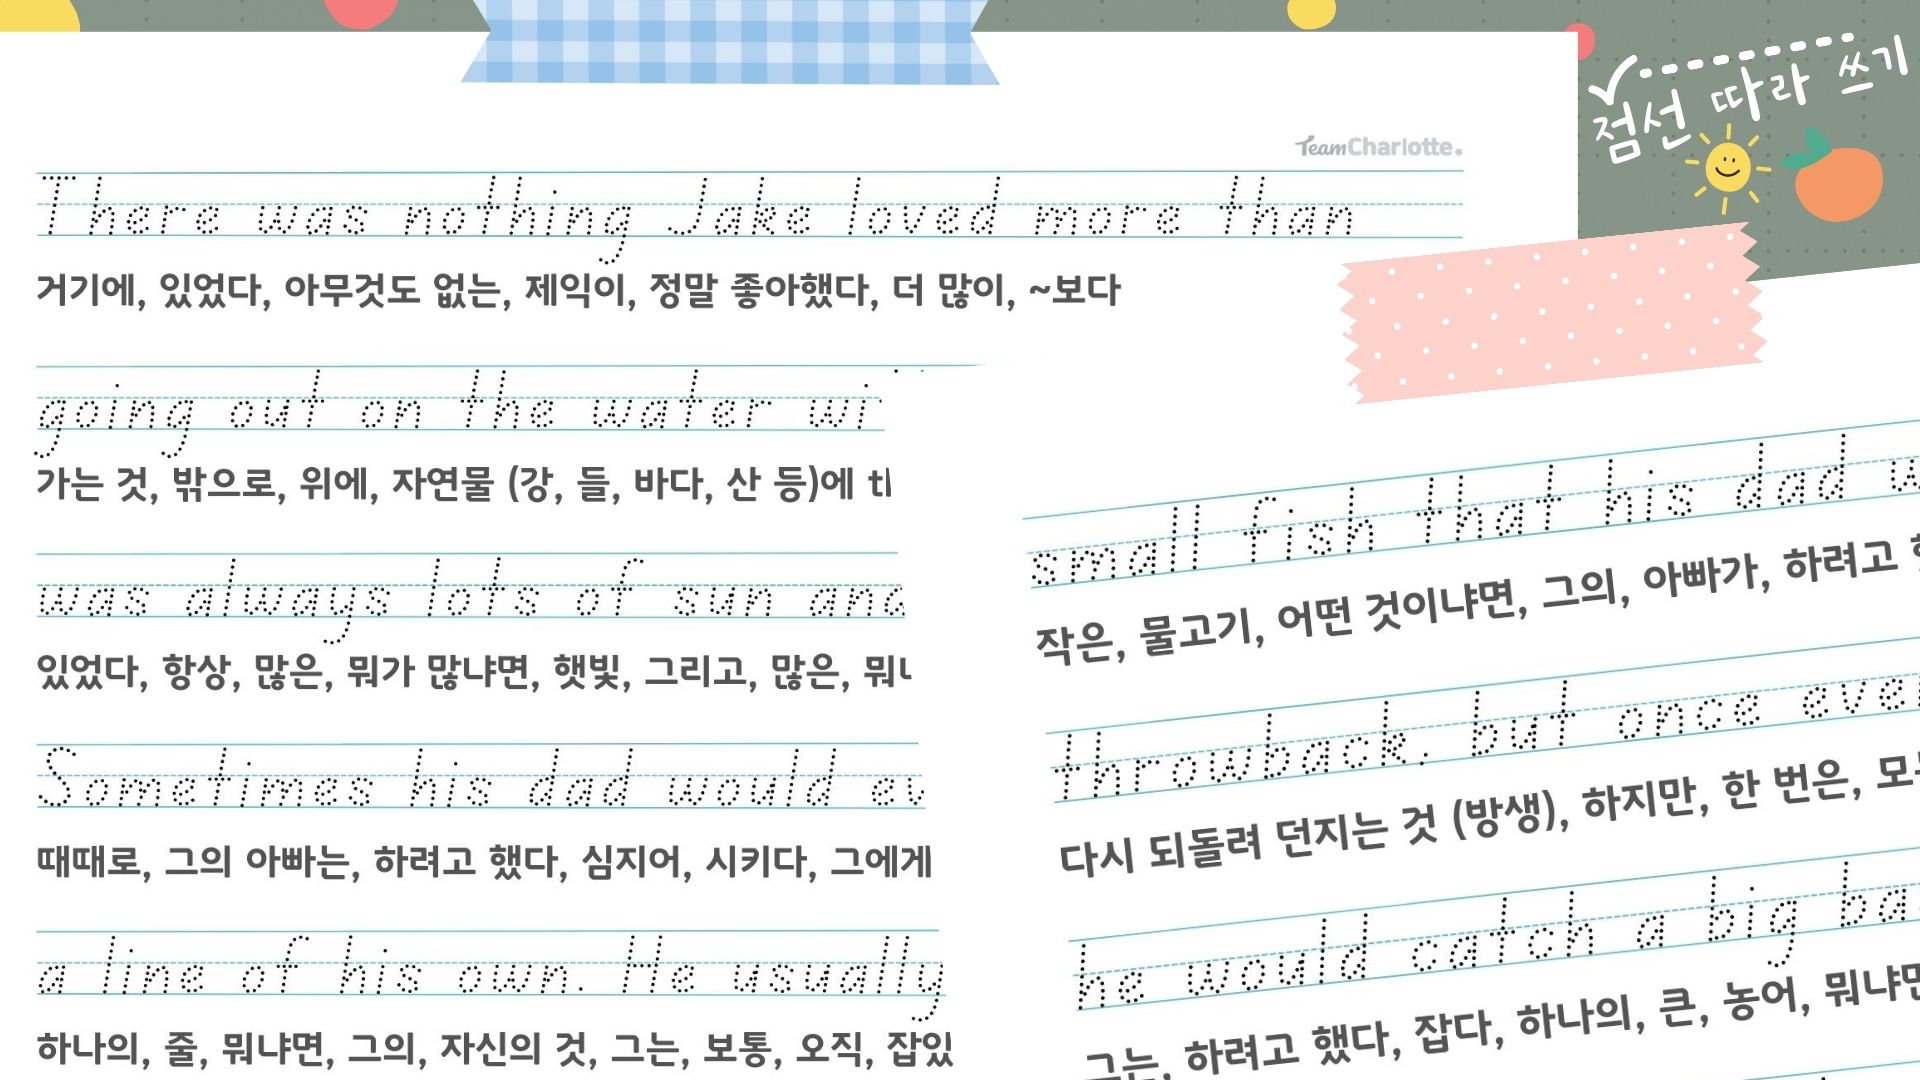 점선 따라 쓰기
TeamCharlotte.
There was nothing Jake loved more than
거기에, 있었다, 아무것도 없는, 제익이, 정말 좋아했다, 더 많이, ~보다
going out on the water
가는 것, 밖으로, 위에, 자연물 (강, 들, 바다, 산 등)에
was always lots of sun and
있었다, 항상, 많은, 뭐가 많냐면, 햇빛, 그리고, 많은,
Sometimes his dad would
때때로, 그의 아빠는, 하려고 했다, 심지어, 시키다, 그에게
a line of his own. He usually
하나의, 줄, 뭐냐면, 그의, 자신의 것, 그는, 보통, 오직,
small fish that his dad
작은, 물고기, 어떤 것이냐면, 그의, 아빠가, 하려고
throwback, but once
다시 되돌려 던지는 것 (방생), 하지만, 한 번은,
he would catch a big
그는, 하려고 했다, 잡다, 하나의, 큰, 농어,